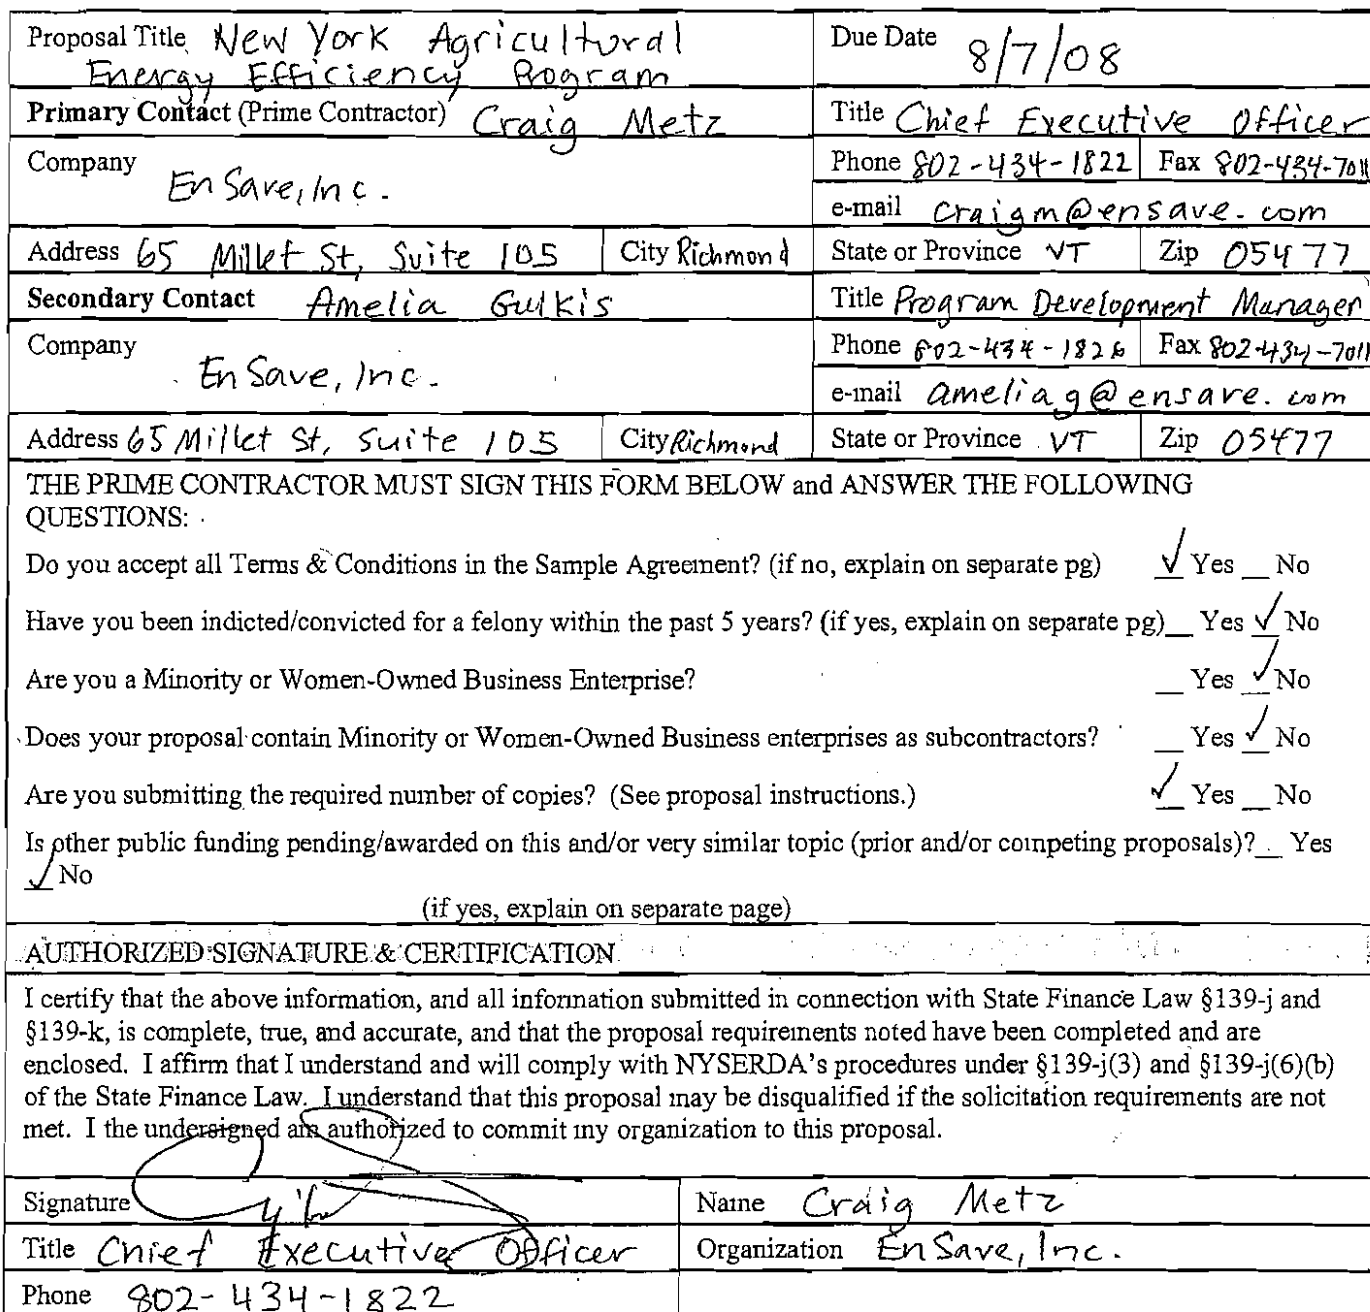 Proposal Title New York Agricultural Energy Efficiency Program
Due Date 8/7/08
Primary Contact (Prime Contractor) Craig Metz
Title Chief Executive Officer
Company EnSave, Inc.
Phone 802-434-1822 Fax 802-434-7011
e-mail craigm@ensave.com
Address 65 Millet St, Suite 105 City Richmond State or Province VT Zip 05477
Secondary Contact Amelia Gulkis
Title Program Development Manager
Company EnSave, Inc.
Phone 802-434-1826 Fax 802-434-7011
e-mail ameliag@ensave.com
Address 65 Millet St, Suite 105 City Richmond State or Province VT Zip 05477
THE PRIME CONTRACTOR MUST SIGN THIS FORM BELOW and ANSWER THE FOLLOWING
QUESTIONS:
Do you accept all Terms & Conditions in the Sample Agreement? (if no, explain on separate pg) ✓ Yes __ No
Have you been indicted/convicted for a felony within the past 5 years? (if yes, explain on separate pg)__ Yes ✓ No
Are you a Minority or Women-Owned Business Enterprise? __ Yes ✓ No
Does your proposal contain Minority or Women-Owned Business enterprises as subcontractors? __ Yes ✓ No
Are you submitting the required number of copies? (See proposal instructions.) ✓ Yes __ No
Is other public funding pending/awarded on this and/or very similar topic (prior and/or competing proposals)?__ Yes
✓ No
(if yes, explain on separate page)
AUTHORIZED SIGNATURE & CERTIFICATION
I certify that the above information, and all information submitted in connection with State Finance Law §139-j and
§139-k, is complete, true, and accurate, and that the proposal requirements noted have been completed and are
enclosed. I affirm that I understand and will comply with NYSERDA's procedures under §139-j(3) and §139-j(6)(b)
of the State Finance Law. I understand that this proposal may be disqualified if the solicitation requirements are not
met. I the undersigned am authorized to commit my organization to this proposal.
Signature
Name Craig Metz
Title Chief Executive Officer
Organization EnSave, Inc.
Phone 802-434-1822